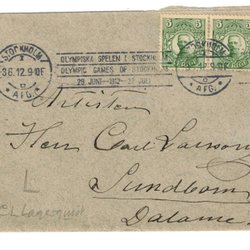 STOCKHOLM
1
3 6. 12. 9-10F
AFG.
OLYMPISKA SPELEN I STOCKH
OLYMPIC GAMES OF STOCKH
29 JUNI - 1912 - 22 JULI
5 5
STOCKHOLM
12. 9-10F
AFG.
Artisten
Herr Carl Larsson
Sundborn
Dalarne
L